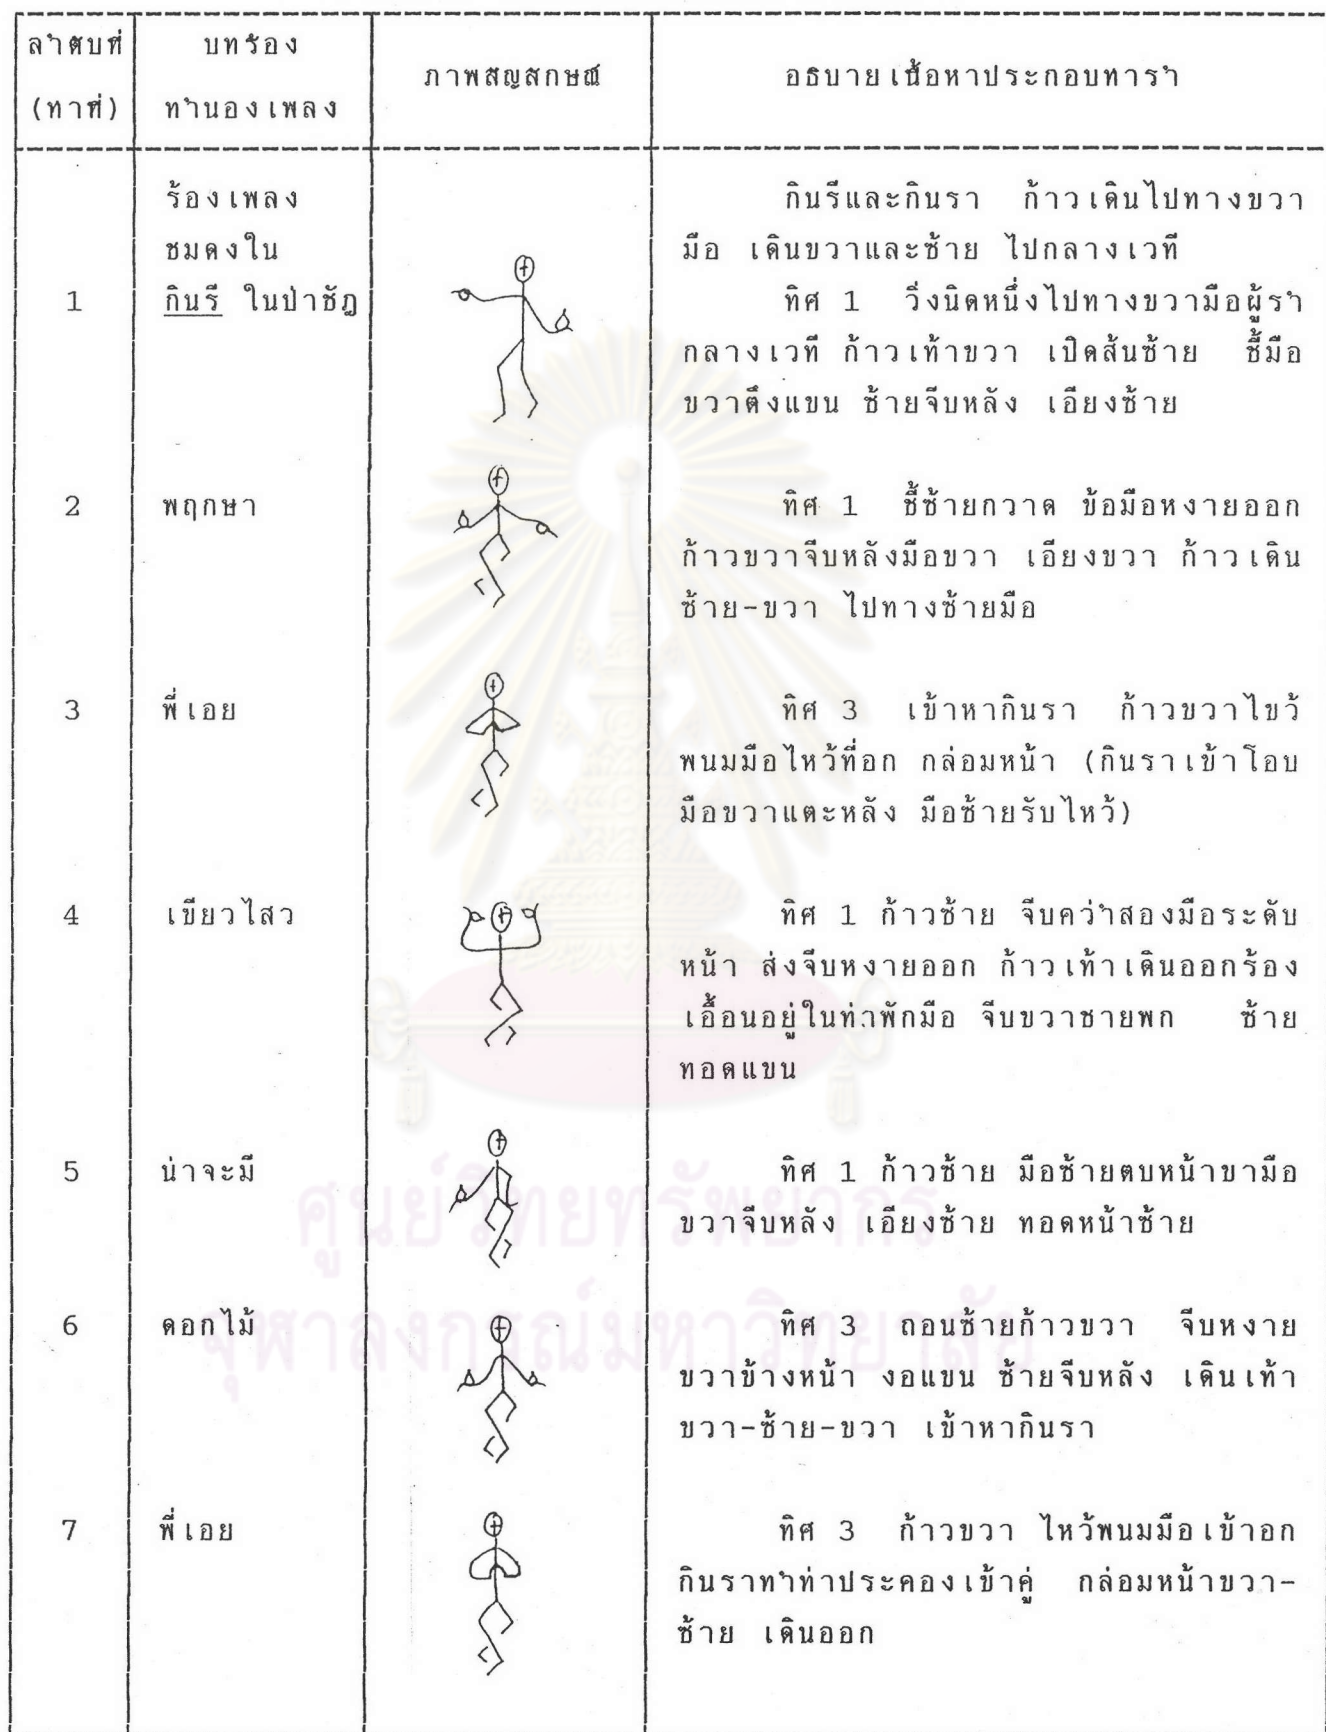 ลำดับที่ บทร้อง ภาพสัญลักษณ์ อธิบายเนื้อหาประกอบท่ารำ
(ท่าที่) ทำนองเพลง
ร้องเพลง กินรีและกินรา ก้าวเดินไปทางขวา
ชมดงใน มือ เดินขวาและซ้าย ไปกลางเวที
1 กินรี ในป่าชัฎ ทิศ 1 วิ่งนิดหนึ่งไปทางขวามือผู้รำ
กลางเวที ก้าวเท้าขวา เปิดส้นซ้าย ชี้มือ
ขวาตึงแขน ซ้ายจีบหลัง เอียงซ้าย
2 พฤกษา ทิศ 1 ชี้ซ้ายกวาด ข้อมือหงายออก
ก้าวขวาจีบหลังมือขวา เอียงขวา ก้าวเดิน
ซ้าย-ขวา ไปทางซ้ายมือ
3 พี่เอย ทิศ 3 เข้าหากินรา ก้าวขวาไขว้
พนมมือไหว้ที่อก กล่อมหน้า (กินราเข้าโอบ
มือขวาแตะหลัง มือซ้ายรับไหว้)
4 เขียวไสว ทิศ 1 ก้าวซ้าย จีบคว่ำสองมือระดับ
หน้า ส่งจีบหงายออก ก้าวเท้าเดินออกร้อง
เอื้อนอยู่ในท่าพักมือ จีบขวาชายพก ซ้าย
ทอดแขน
5 น่าจะมี ทิศ 1 ก้าวซ้าย มือซ้ายตบหน้าขามือ
ขวาจีบหลัง เอียงซ้าย ทอดหน้าซ้าย
6 ดอกไม้ ทิศ 3 ถอนซ้ายก้าวขวา จีบหงาย
ขวาข้างหน้า งอแขน ซ้ายจีบหลัง เดินเท้า
ขวา-ซ้าย-ขวา เข้าหากินรา
7 พี่เอย ทิศ 3 ก้าวขวา ไหว้พนมมือเข้าอก
กินราทำท่าประคองเข้าคู่ กล่อมหน้าขวา-
ซ้าย เดินออก
ศูนย์วิทยทรัพยากร
จุฬาลงกรณ์มหาวิทยาลัย